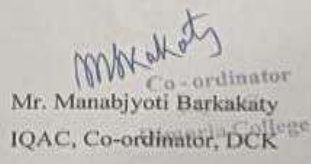 Co-ordinator
Mr. Manabjyoti Barkakaty
IQAC, Co-ordinator, DCK
College